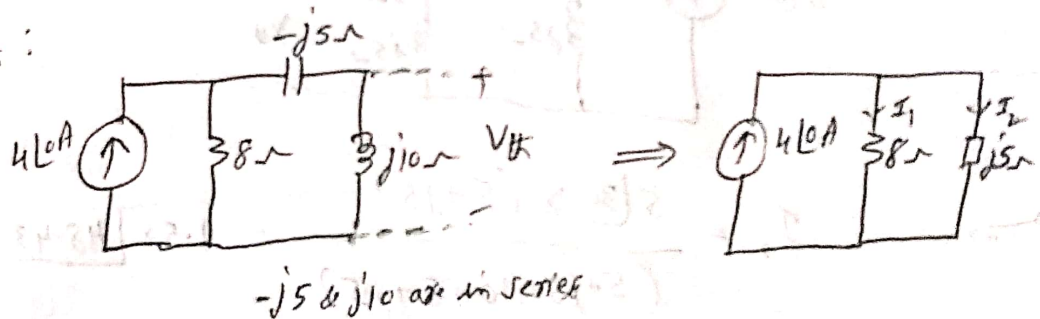 :
-j5Ω
+
4∠0A
8Ω
j10Ω
Vth
⇒
4∠0A
I₁
8Ω
I₂
j5Ω
-
-j5 & j10 are in series